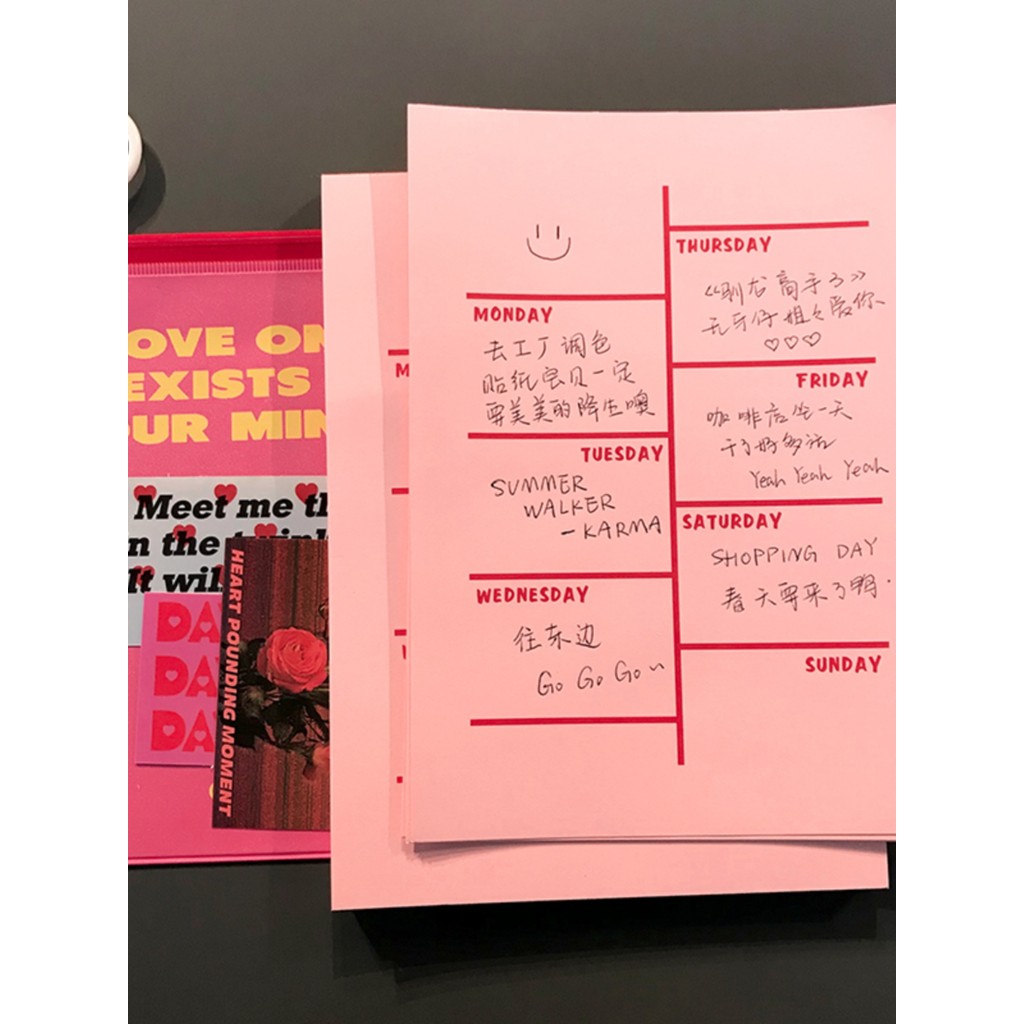 OVE ON
EXISTS
OUR MIN
Meet me th
n the twinkl
It wil
DA
DA
DA
HEART POUNDING MOMENT
M
MONDAY
去工厂调色
贴纸宝贝一定
要美美的降生噢
TUESDAY
SUMMER
WALKER
-KARMA
WEDNESDAY
往东边
Go Go Go~
THURSDAY
《驯龙高手3》
无牙仔姐姐爱你
♡♡♡
FRIDAY
咖啡店坐一天
干了好多活
Yeah Yeah Yeah
SATURDAY
SHOPPING DAY
春天要来了鸭.
SUNDAY